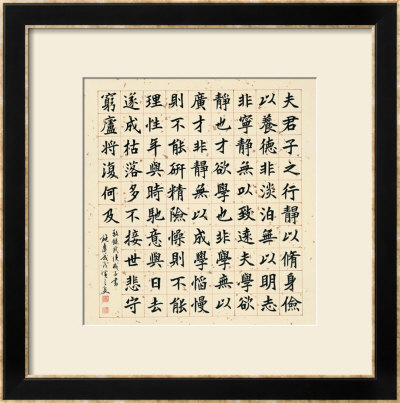 夫君子之行靜以脩身儉
以養德非淡泊無以明志
非寧靜無以致遠夫學欲
靜也才欲學也非學無以
廣才非靜無以成學慆慢
則不能研精險懆則不能
理性年與時馳意與日去
遂成枯落多不接世悲守
窮廬將復何及